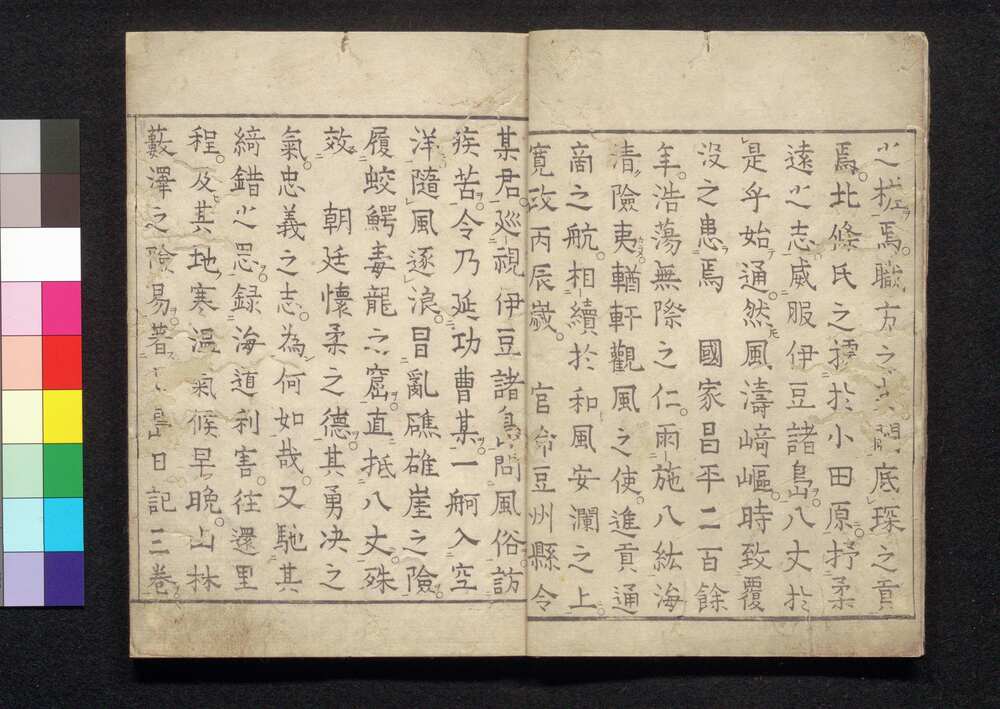 之椛焉。職方之 開底琛之貢
焉。北條氏之據於小田原。抒柔
遠之志。威服伊豆諸島。八丈於
是乎始通。然風濤崎嶇。時致覆
沒之患焉 國家昌平二百餘
年。浩蕩無際之仁。雨施八紘。海
清險夷。輶軒觀風之使。進貢通
商之航。相續於和風安瀾之上。
寛政丙辰歲。 官命豆州縣令
某君。巡視伊豆諸島。問風俗。訪
疾苦。令乃延功曹某。一舸入空
洋。隨風逐浪。冒亂礁雄崖之險。
履蛟鰐毒龍之窟。直抵八丈。殊
效 朝廷懷柔之德。其勇决之
氣。忠義之志。為何如哉。又馳其
綺錯之思。録海道利害。往還里
程。及其地寒溫氣候早晚。山林
藪澤之險易。著 日記三卷